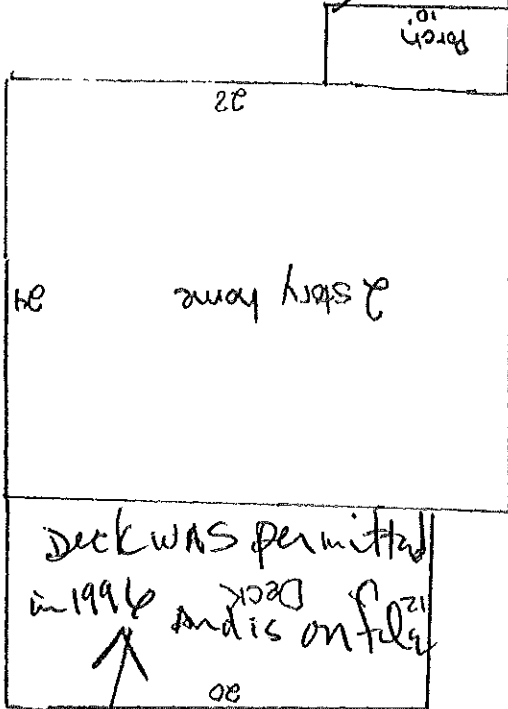 Porch
10'
22
24
2 story home
Deck WAS permitted
in 1996 And is on file
Deck
12
20